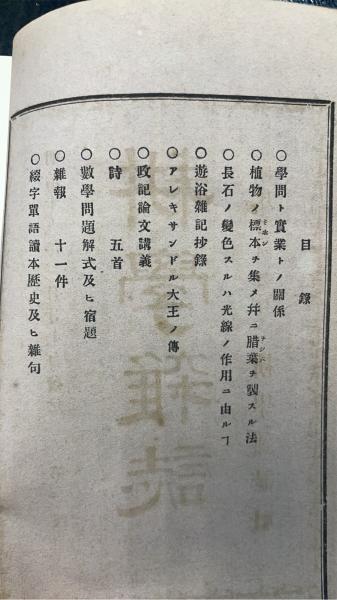 目録
○學問ト實業トノ關係
○植物ノ標本ヲ集メ幷ニ腊葉ヲ製スル法
○長石ノ變色スルハ光線ノ作用ニ由ルヿ
○遊浴雜記抄錄
○アレキサンドル大王ノ傳
○政記論文講義
○詩 五首
○數學問題解式及ヒ宿題
○雜報 十一件
○綴字單語讀本歷史及ヒ雜句